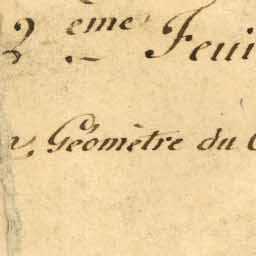 2ème Feui
Géomètre du